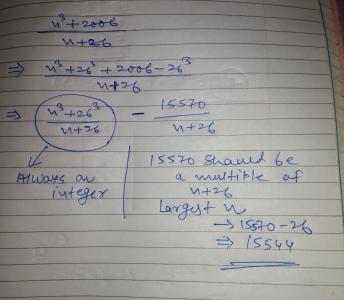 n³+2006
n+26
⇒ n³+26³+2006-26³
n+26
⇒ n³+26³ - 15570
n+26 n+26
Always an
integer
15570 should be
a multiple of
n+26
Largest n
→ 15570-26
⇒ 15544